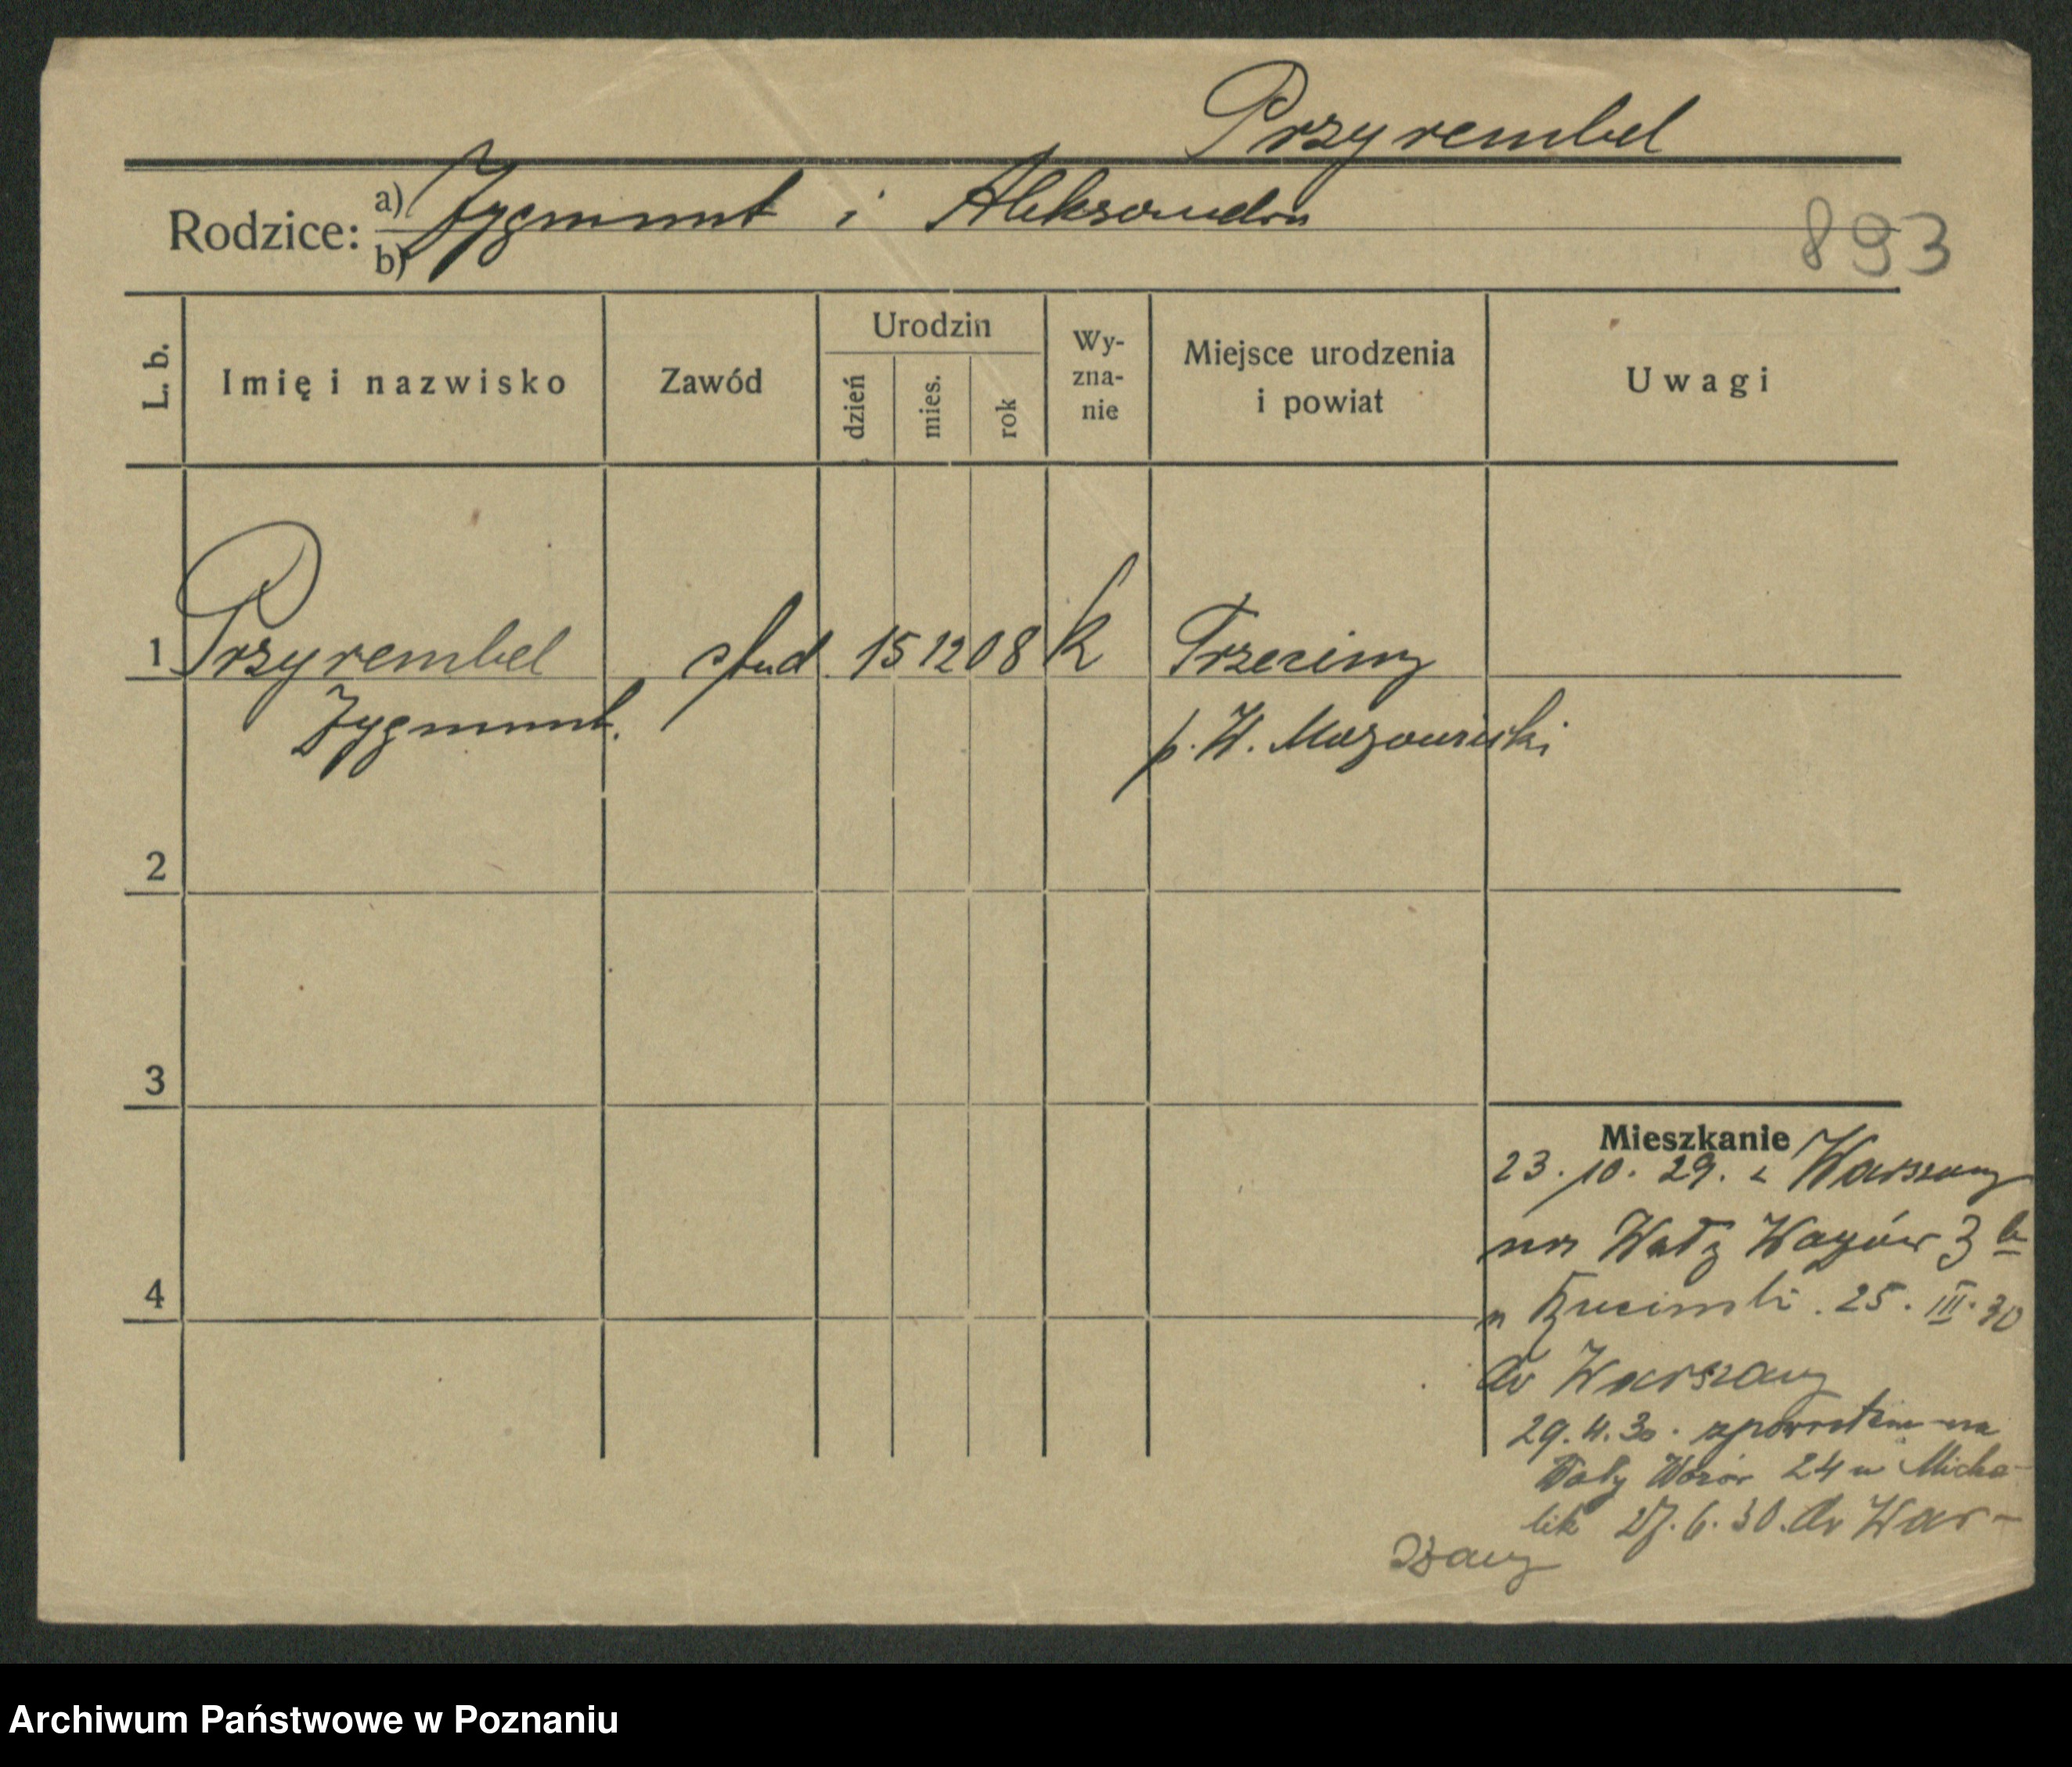 Przyrembel
Rodzice: a) Zygmunt i Aleksandra
b)
893
L. b.
Imię i nazwisko
Zawód
Urodzin
dzień
mies.
rok
Wy-
zna-
nie
Miejsce urodzenia
i powiat
Uwagi
1 Przyrembel stud. 15 12 08 k Trzeciny
Zygmunt. p. W. Mazowiecki
2
3
4
Mieszkanie
23. 10. 29. z Warszawy
na Wały 3
25. III. 30
do Warszawy
29. 4. 30. zpowrotem na
Wały 24 u Micha-
lik 27. 6. 30. do War-
szawy
Archiwum Państwowe w Poznaniu